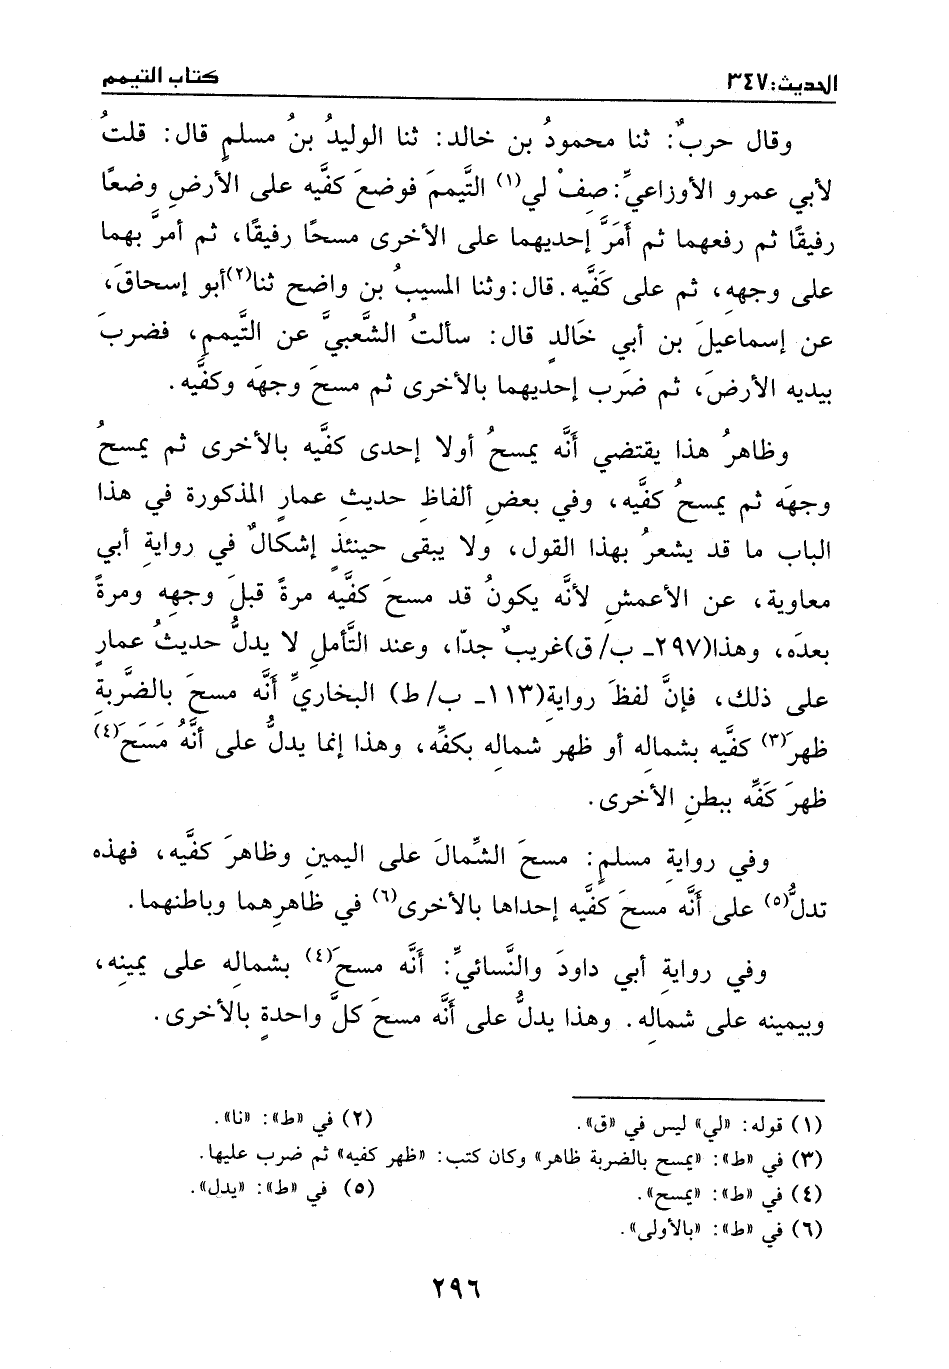 الحديث: ٣٤٧ كتاب التيمم
وقال حربٌ: ثنا محمودُ بن خالد: ثنا الوليدُ بنُ مسلمٍ قال: قلتُ
لأبي عمرو الأوزاعيِّ: صِفْ لي(١) التَّيممَ فوضعَ كفَّيه على الأرضِ وضعًا
رفيقًا ثم رفعهما ثم أَمَرَّ إحديهما على الأخرى مسحًا رفيقًا، ثم أمرَّ بهما
على وجههِ، ثم على كَفَّيه. قال: وثنا المسيبُ بن واضح ثنا(٢) أبو إسحاقَ،
عن إسماعيلَ بن أبي خَالدٍ قال: سألتُ الشَّعبيَّ عن التَّيممِ، فضربَ
بيديه الأرضَ، ثم ضرَب إحديهما بالأخرى ثم مسحَ وجهَه وكفَّيه.
وظاهرُ هذا يقتضي أنَّه يمسحُ أولا إحدى كفَّيه بالأخرى ثم يمسحُ
وجهَه ثم يمسحُ كفَّيه، وفي بعضِ ألفاظِ حديثِ عمارٍ المذكورة في هذا
الباب ما قد يشعرُ بهذا القول، ولا يبقى حينئذٍ إشكالٌ في روايةِ أبي
معاوية، عن الأعمشِ لأنَّه يكونُ قد مسحَ كفَّيه مرةً قبلَ وجههِ ومرةً
بعدَه، وهذا(٢٩٧ـ ب/ق)غريبٌ جدّا، وعند التَّأملِ لا يدلُّ حديثُ عمارٍ
على ذلك، فإنَّ لفظَ رواية(١١٣ـ ب/ط) البخاريِّ أنَّه مسحَ بالضَّربةِ
ظهرَ(٣) كفَّيه بشمالهِ أو ظهر شمالهِ بكفِّه، وهذا إنما يدلُّ على أنَّهُ مَسَحَ(٤)
ظهرَ كَفِّه ببطنِ الأخرى.
وفي روايةِ مسلمٍ: مسحَ الشِّمالَ على اليمينِ وظاهرَ كفَّيه، فهذه
تدلُّ(٥) على أنَّه مسحَ كفَّيه إحداها بالأخرى(٦) في ظاهرِهما وباطنهما.
وفي روايةِ أبي داودَ والنَّسائيِّ: أنَّه مسحَ(٤) بشماله على يمينِه،
وبيمينه على شمالِه. وهذا يدلُّ على أنَّه مسحَ كلَّ واحدةٍ بالأخرى.
(١) قوله: «لي» ليس في «ق». (٢) في «ط»: «نا».
(٣) في «ط»: «يمسح بالضربة ظاهر» وكان كتب: «ظهر كفيه» ثم ضرب عليها.
(٤) في «ط»: «يمسح». (٥) في «ط»: «يدل».
(٦) في «ط»: «بالأولى».
٢٩٦